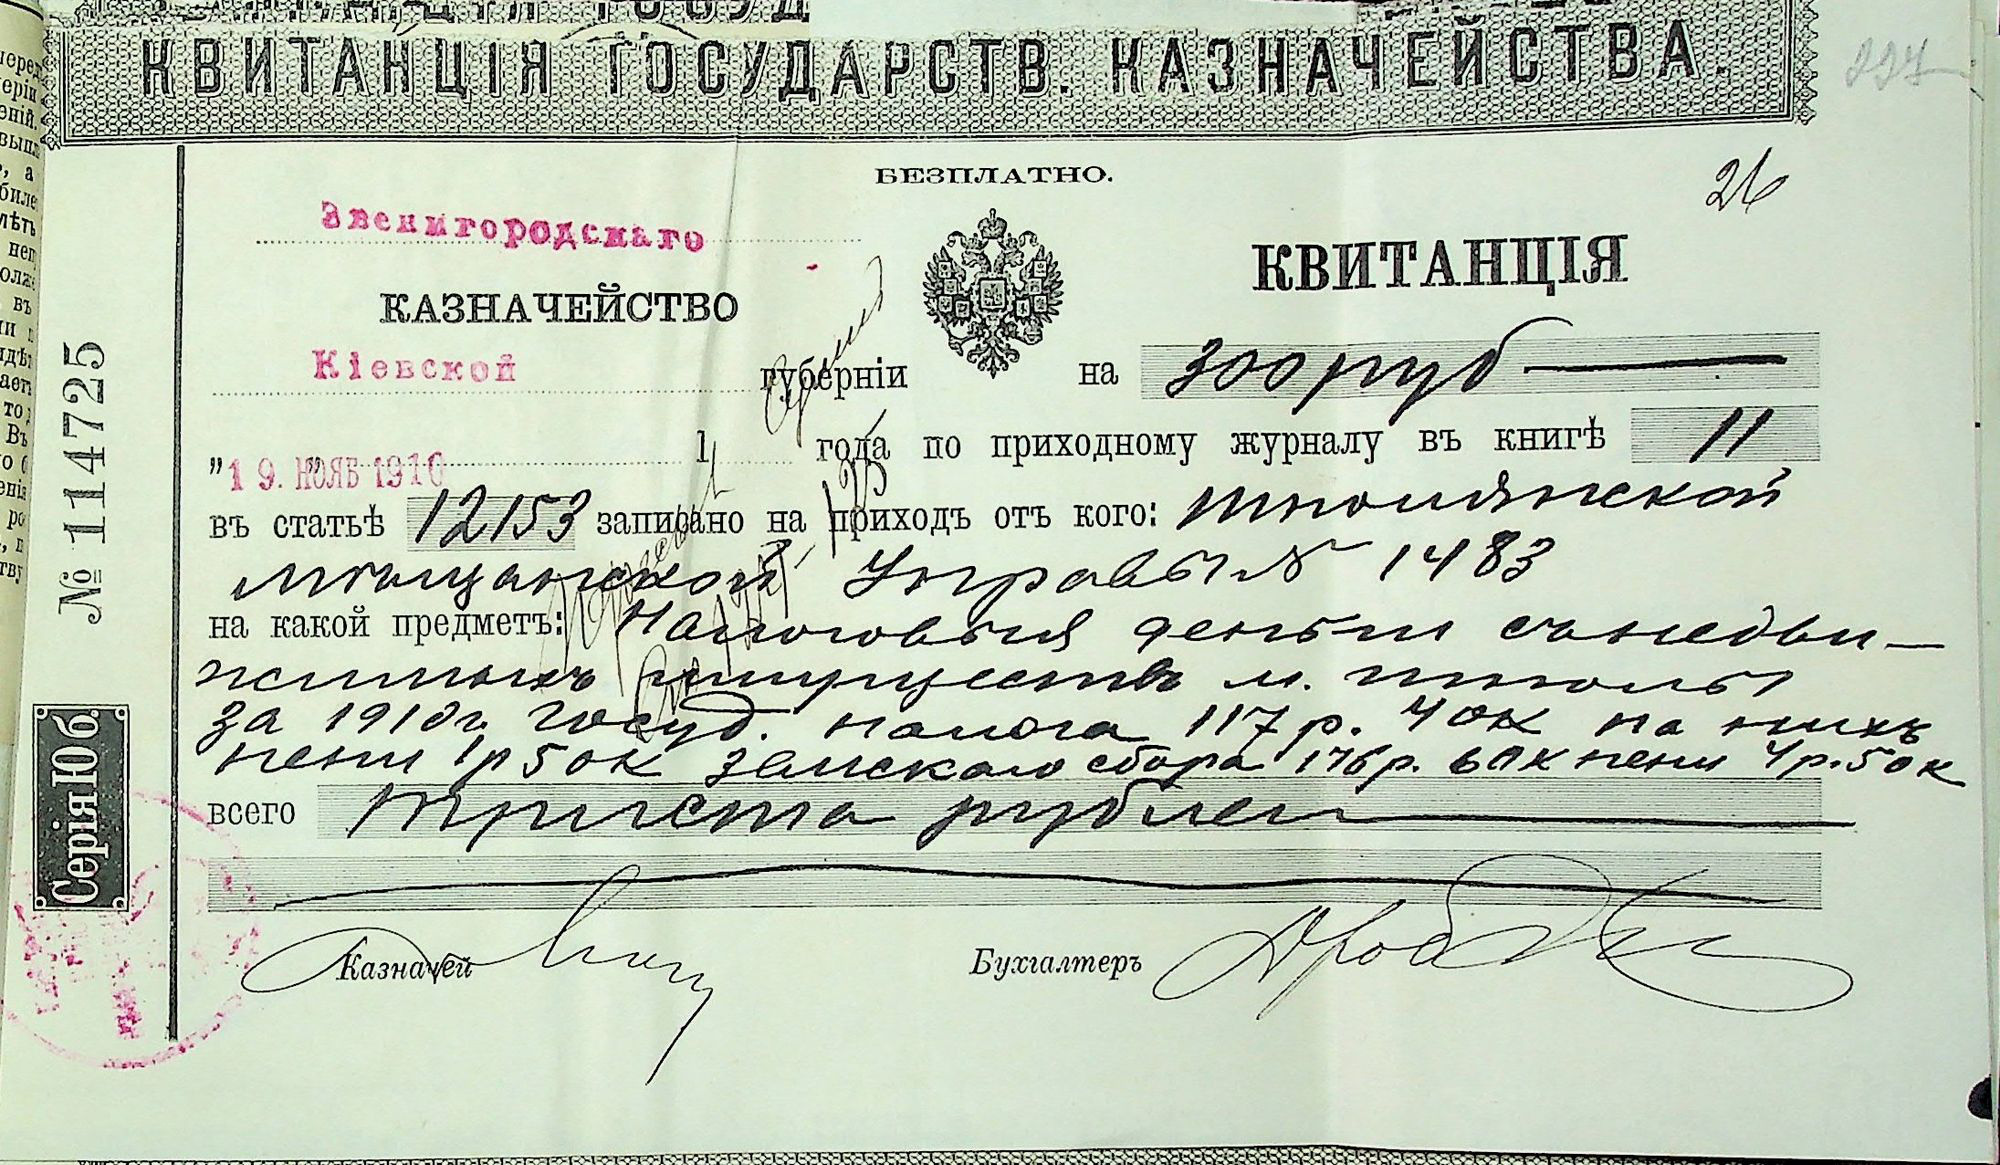 КВИТАНЦІЯ ГОСУДАРСТВ. КАЗНАЧЕЙСТВА.
227
БЕЗПЛАТНО.
26
Звенигородскаго
КАЗНАЧЕЙСТВО
КВИТАНЦІЯ
Кіевской губерніи
на 300 руб
"19. НОЯБ 1910 1 года по приходному журналу въ книгѣ 11
въ статьѣ 12153 записано на приходъ отъ кого: Шполянской
Мѣщанской Управы № 1483
на какой предметъ: Налоговыя деньги съ недви-
жимыхъ имуществъ м. Шполы
за 1910 г. госуд. налога 117 р. 40 к на нихъ
пени 1 р 50 к земскаго сбора 176 р. 60 к пени 4 р. 50 к
всего триста рублей
Казначей
Бухгалтеръ
№ 114725
Серія Юб.